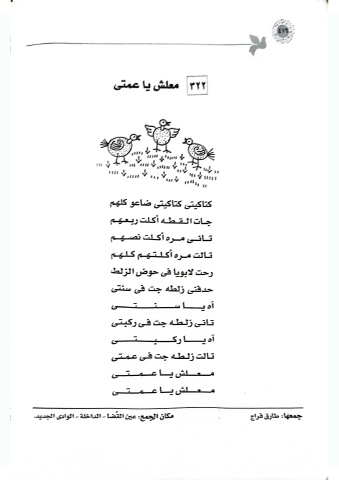 ٤١٦
٣٢٢
معلش يا عمتى
كتاكيتى كتاكيتى ضاعو كلهم
جات القطه أكلت ربعهم
تانى مره أكلت نصهم
تالت مره أكلتهم كلهم
رحت لابويا فى حوض الزلط
حدفنى زلطه جت فى سنتى
آه يا سنتى
تانى زلطه جت فى ركبتى
آه يا ركبتى
تالت زلطه جت فى عمتى
معلش يا عمتى
معلش يا عمتى
جمعها: طارق فراج
مكان الجمع: عين القضا - الداخلة - الوادى الجديد.